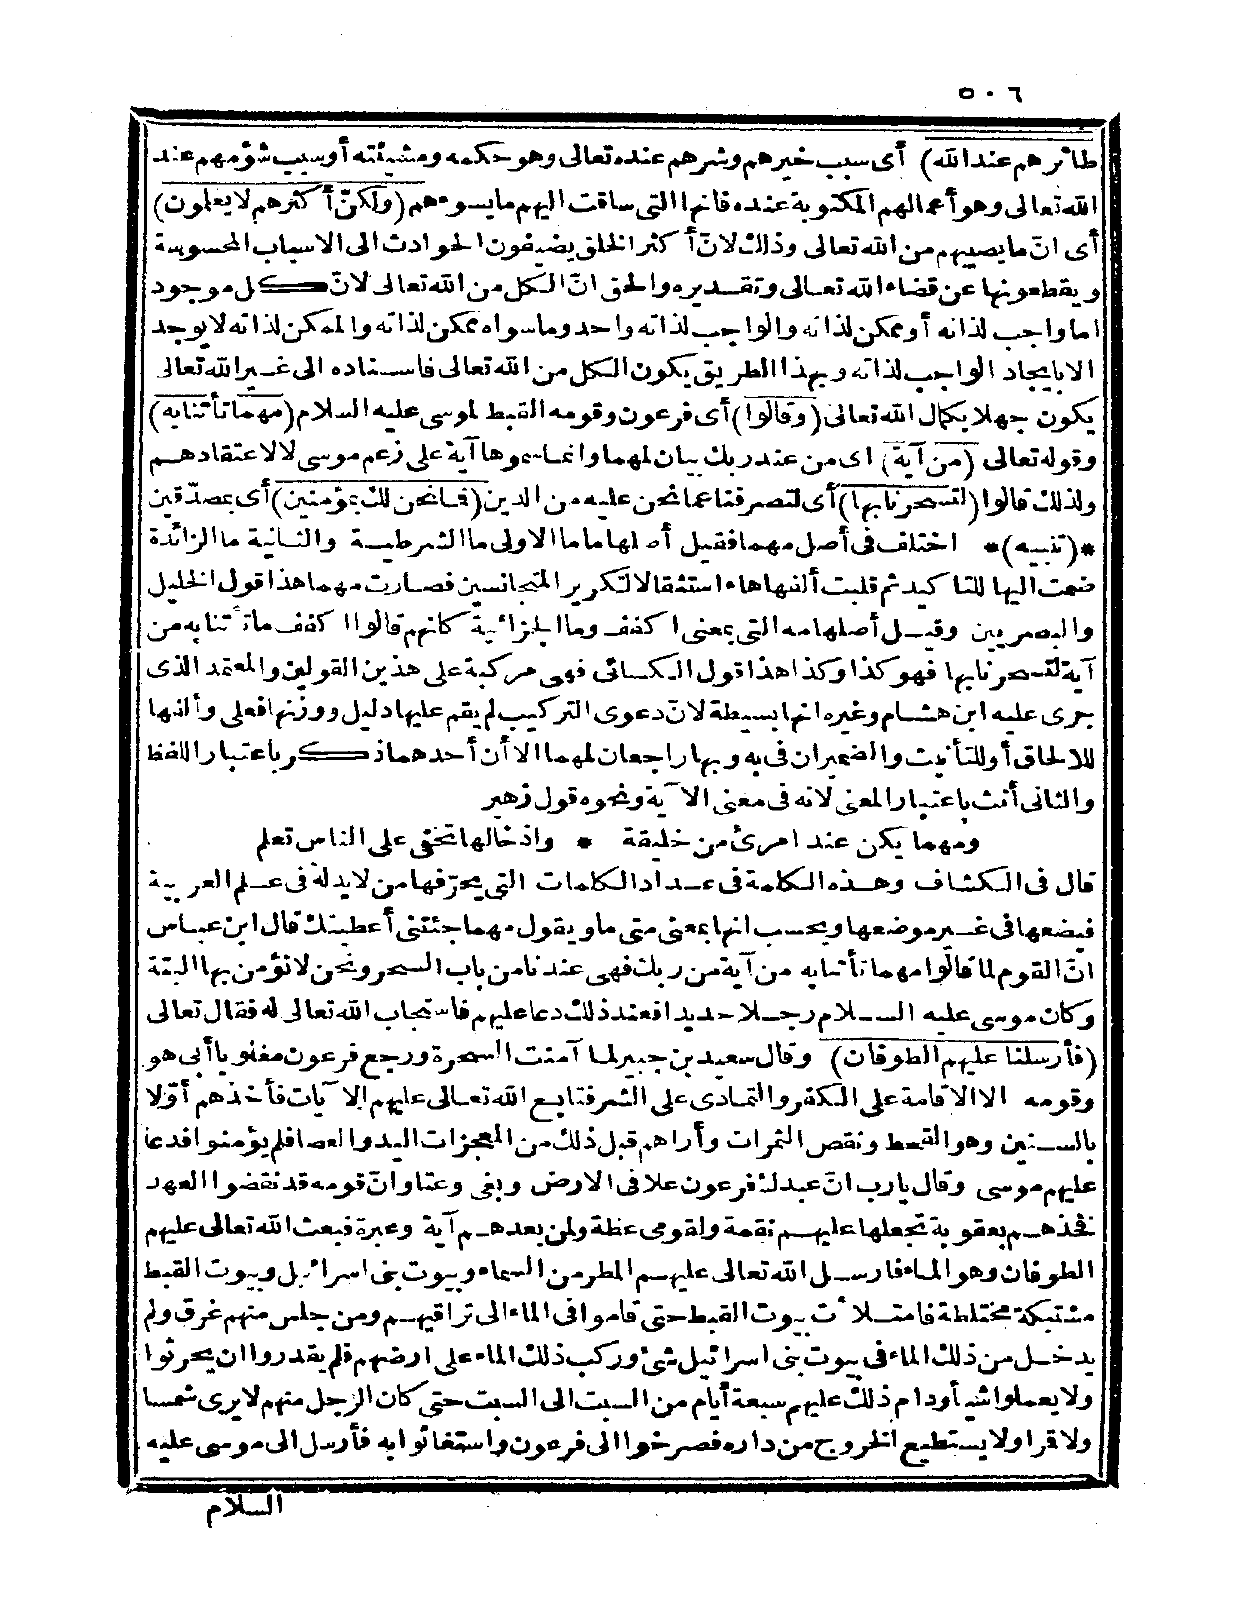 ٥٠٦
طائرهم عند الله) أى سبب خيرهم وشرهم عنده تعالى وهو حكمه ومشيئته أو سبب شؤمهم عند
الله تعالى وهو أعمالهم المكتوبة عنده فانها التى ساقت اليهم ما يسوءهم (ولكنّ أكثرهم لا يعلمون)
أى انّ ما يصيبهم من الله تعالى وذلك لانّ أكثر الخلق يضيفون الحوادث الى الاسباب المحسوسة
ويقطعونها عن قضاء الله تعالى وتقديره والحق انّ الكل من الله تعالى لانّ كل موجود
اما واجب لذاته أو ممكن لذاته والواجب لذاته واحد وما سواه ممكن لذاته والممكن لذاته لا يوجد
الا بايجاد الواجب لذاته وبهذا الطريق يكون الكل من الله تعالى فاسناده الى غير الله تعالى
يكون جهلا بكمال الله تعالى (وقالوا) أى فرعون وقومه القبط لموسى عليه السلام (مهما تأتنا به)
وقوله تعالى (من آية) اى من عند ربك بيان لمهما وانما سموها آية على زعم موسى لا لاعتقادهم
ولذلك قالوا (لتسحرنا بها) أى لتصرفنا عما نحن عليه من الدين (فما نحن لك بمؤمنين) أى بمصدّقين
*(تنبيه)* اختلف فى أصل مهما فقيل أصلها ما ما الاولى ما الشرطية والثانية ما الزائدة
ضمت اليها للتاكيد ثم قلبت ألفها هاء استثقالا لتكرير المتجانسين فصارت مهما هذا قول الخليل
والبصريين وقيل أصلها مه التى بمعنى اكفف وما الجزائية كانهم قالوا اكفف ما تأتنا به من
آية لتسحرنا بها فهو كذا وكذا هذا قول الكسائى فهى مركبة على هذين القولين والمعتمد الذى
جرى عليه ابن هشام وغيره انها بسيطة لانّ دعوى التركيب لم يقم عليها دليل ووزنها فعلى وألفها
للالحاق أو للتأنيث والضميران فى به وبها راجعان لمهما الا أن أحدهما ذكر باعتبار اللفظ
والثانى أنث باعتبار المعنى لانه فى معنى الآية ونحوه قول زهير
ومهما يكن عند امرئ من خليقة * واذ خالها تخفى على الناس تعلم
قال فى الكشاف وهذه الكلمة فى عداد الكلمات التى يحرّفها من لا يد له فى علم العربية
فيضعها فى غير موضعها ويحسب انها بمعنى متى ما ويقول مهما جئتنى أعطيتك قال ابن عباس
انّ القوم لما قالوا مهما تأتنا به من آية من ربك فهى عندنا من باب السحر ونحن لا نؤمن بها البتة
وكان موسى عليه السلام رجلا حديدا فعند ذلك دعا عليهم فاستجاب الله تعالى له فقال تعالى
(فأرسلنا عليهم الطوفان) وقال سعيد بن جبير لما آمنت السحرة ورجع فرعون مغلوبا أبى هو
وقومه الا الاقامة على الكفر والتمادى على الشر فتابع الله تعالى عليهم الآيات فأخذهم أوّلا
بالسنين وهو القحط ونقص الثمرات وأراهم قبل ذلك من المعجزات اليد والعصا فلم يؤمنوا فدعا
عليهم موسى وقال يا رب انّ عبدك فرعون علا فى الارض وبغى وعتا وانّ قومه قد نقضوا العهد
فخذهم بعقوبة تجعلها عليهم نقمة ولقومى عظة ولمن بعدهم آية وعبرة فبعث الله تعالى عليهم
الطوفان وهو الماء فارسل الله تعالى عليهم المطر من السماء وبيوت بنى اسرائيل وبيوت القبط
مشتبكة مختلطة فامتلأت بيوت القبط حتى قاموا فى الماء الى تراقيهم ومن جلس منهم غرق ولم
يدخل من ذلك الماء فى بيوت بنى اسرائيل شئ وركب ذلك الماء على ارضهم فلم يقدروا ان يحرثوا
ولا يعملوا شيأ ودام ذلك عليهم سبعة أيام من السبت الى السبت حتى كان الرجل منهم لا يرى شمسا
ولا قمرا ولا يستطيع الخروج من داره فصرخوا الى فرعون واستغاثوا به فأرسل الى موسى عليه
السلام